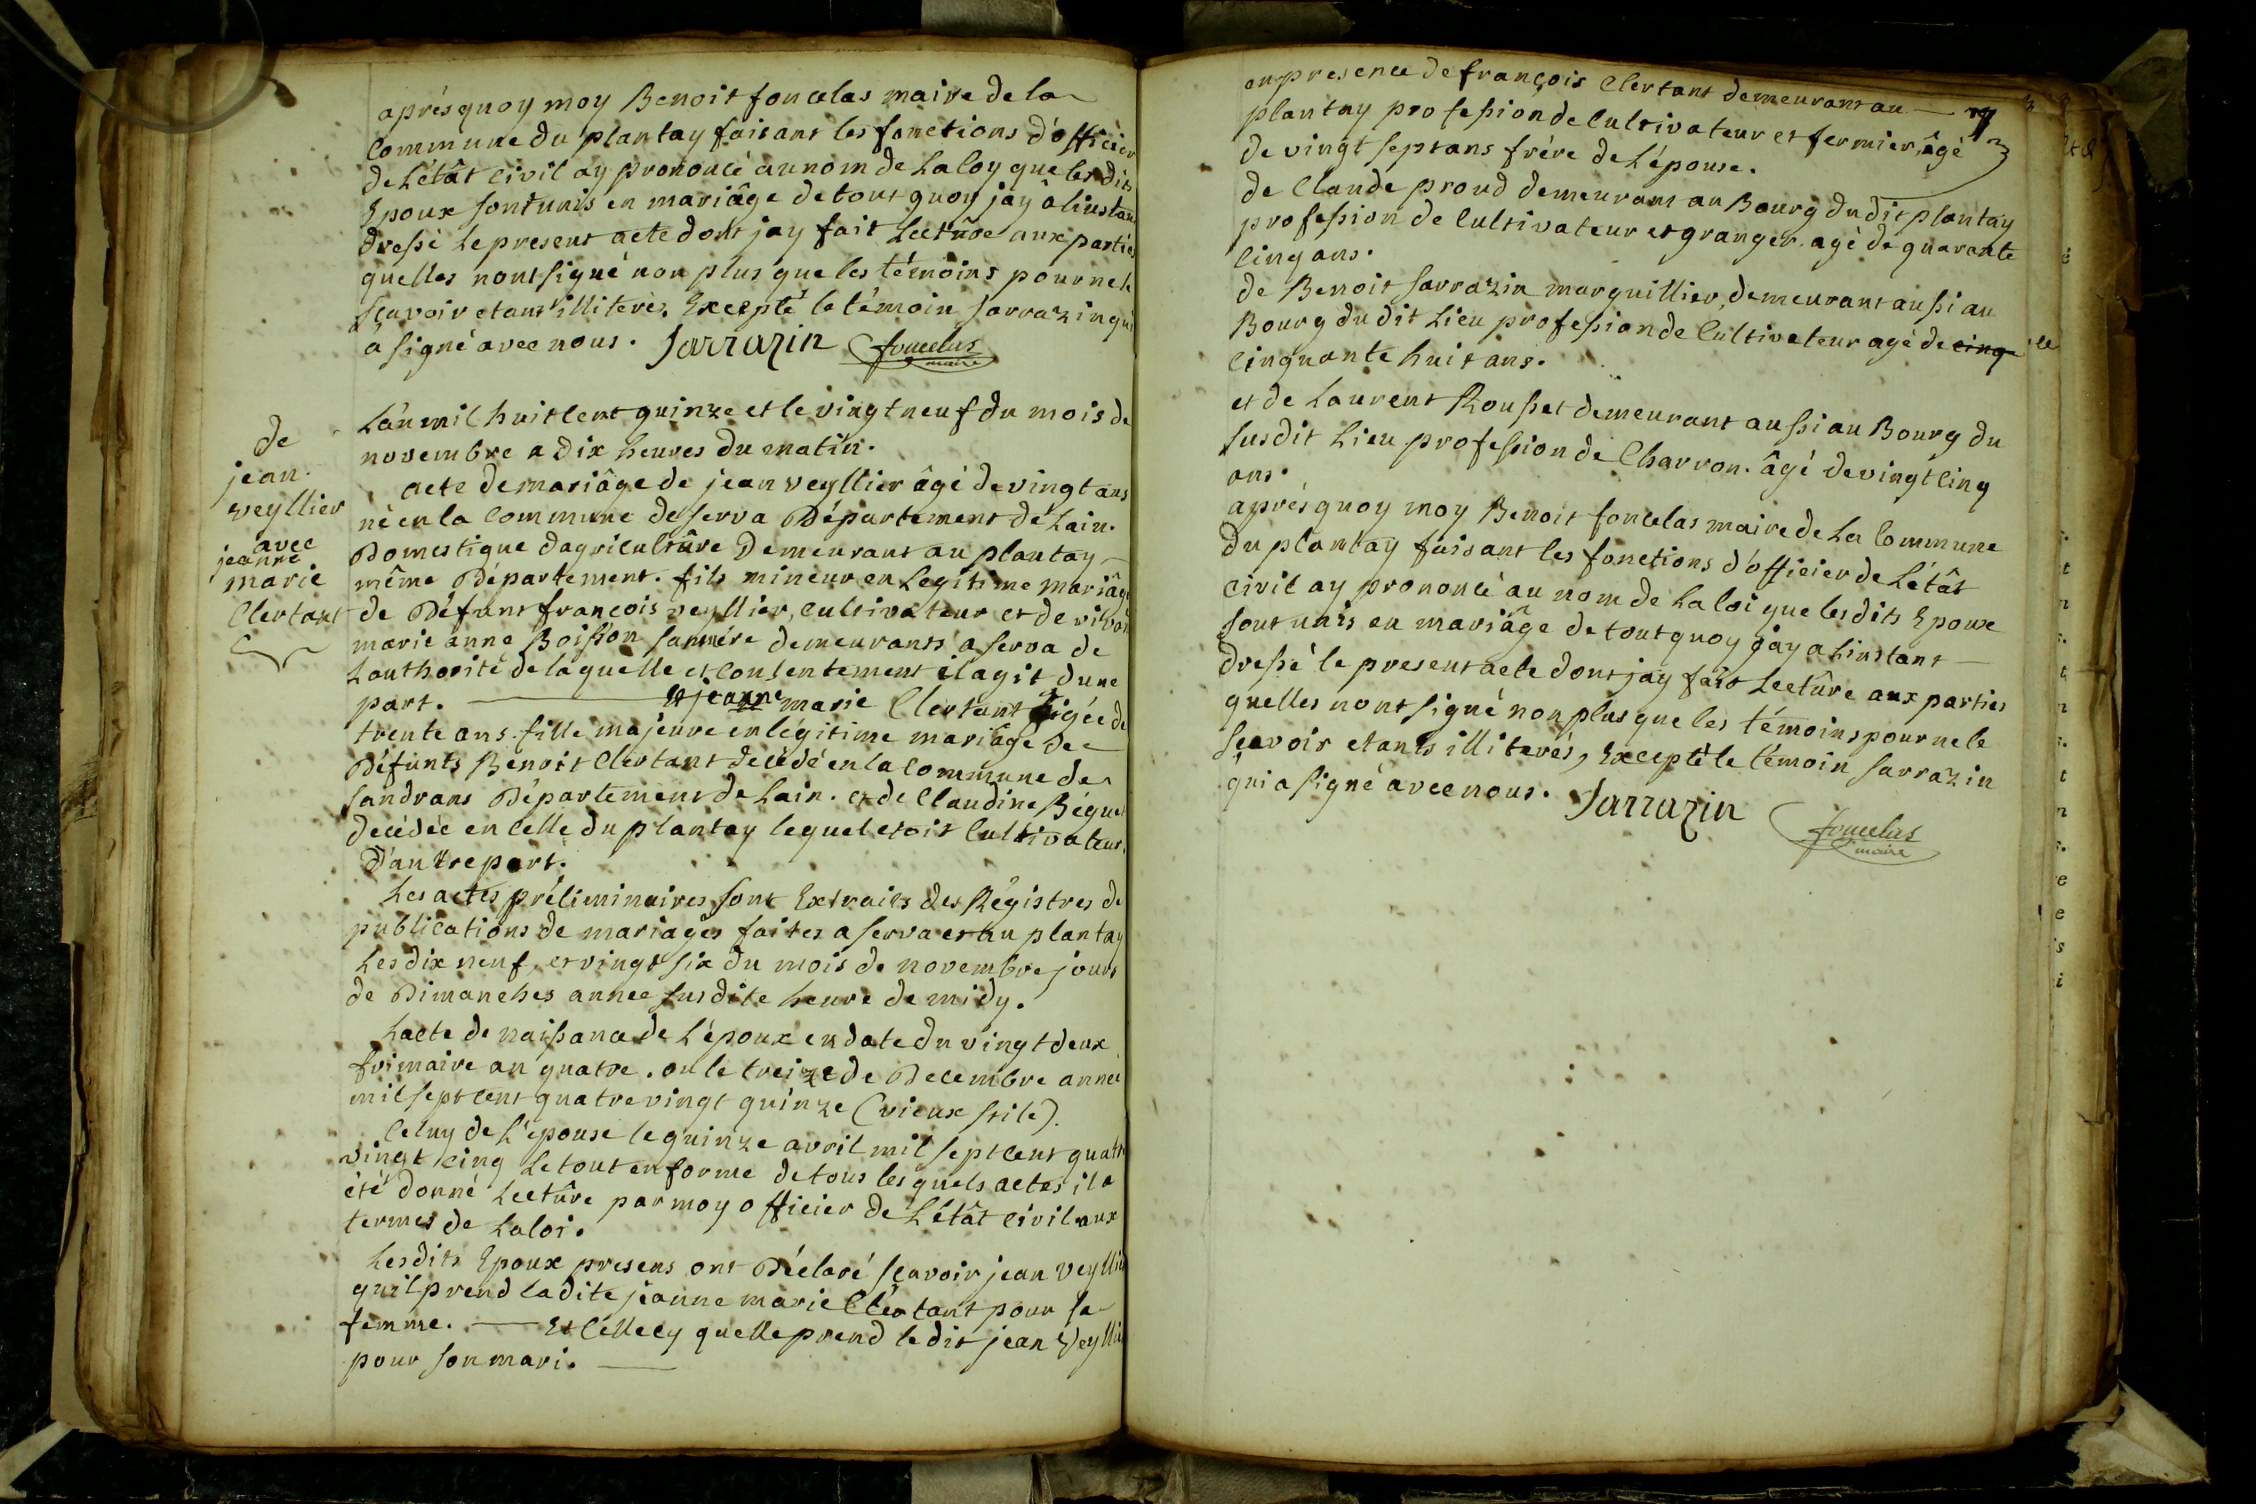 aprés quoy moy Benoit foncelas maire de la
Commune du plantay faisant les fonctions d'officier
de L'état civil ay prononcé au nom de La loy que lesdits
Epoux sont unis en mariâge de tout quoy jay a linstan
dressé le present acte dont jay fait Lectûre aux parties
quelles nont signé non plus que les témoins pour ne le
sçavoir etant illiterés. Excepté le témoin Sarrazin qui
a signé avec nous. Sarrazin foncelas
maire
L'an mil huit Cent quinze et le vingt neuf du mois de
novembre a dix heures du matin.
de
jean
veyllier
avec
jeanne
marie
Clertant
acte de mariâge de jean veyllier âgé de vingt ans
né en la Commune de serva Département de Lain.
Domestique dagricultûre Demeurant au plantay
même Département. fils mineur en Legitime mariâge
de Défunt françois veyllier, cultivateur et de vivan
marie anne Boisson sa mére demeurants a serva de
Lauthorité de laquelle et Consentement il agit dune
part. Et jeanne marie Clertant âgée de
trente ans. fille majeure en légitime mariâge de
Défunts Benoit Clertant décédé en la Commune de
sandrans Département de Lain. et de Claudine Béguet
decédée en Celle du plantay lequel etoit Cultivateur.
D'autre part.
Les actes préliminaires sont Extraits des Régistres de
publications de mariâges faites a serva et au plantay
Les dix neuf, et vingt six du mois de novembre jours
de Dimanches annee susdite heure de midy.
Lacte de naissance de L'époux en date du vingt deux
frimaire an quatre. ou le treize de Decembre année
mil sept cent quatre vingt quinze (vieux stile).
Celuy de L'epouse le quinze avril mil sept Cent quatre
vingt cinq Le tout en forme de tous lesquels actes il a
été donné Lectûre par moy officier de L'état civil aux
termes de la loi.
Lesdits Epoux presens ont Déclaré sçavoir jean veyllier
quil prend la dite jeanne marie Clertant pour sa
femme. Et Cellecy quelle prend le dit jean Veyllier
pour son mari.
en presence de françois Clertant demeurant au
plantay profession de Cultivateur et fermier, âgé
de vingt sept ans frére de L'épouse.
de Claude proud demeurant au Bourg du dit plantay
profession de Cultivateur et granger. agé de quarante
Cinq ans.
de Benoit Sarrazin marguillier, demeurant aussi au
Bourg du dit Lieu profession de Cultivateur agé de cinq
Cinquante huit ans.
et de Laurent Rousset demeurant aussi au Bourg du
susdit Lieu profession de Charron. âgé de vingt Cinq
ans.
aprés quoy moy Benoit foncelas maire de La Commune
du plantay faisant les fonctions d'officier de L'état
Civil ay prononcé au nom de La loi que lesdits Epoux
sont unis en mariâge de tout quoy jay a linstant
dressé le present acte dont jay fait Lectûre aux parties
quelles nont signé non plus que les témoins pour ne le
sçavoir etants illiterés, Excepté le témoin Sarrazin
qui a signé avec nous. Sarrazin foncelas
maire